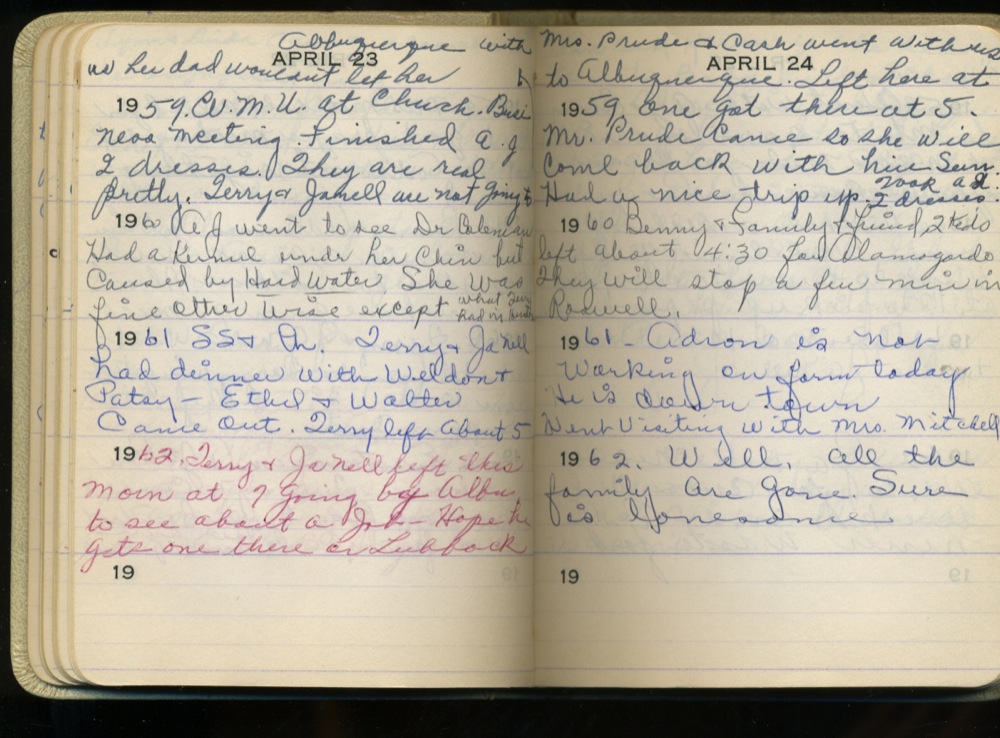 Albuquerque with
APRIL 23
us her dad wouldn't let her
1959. C.V.M.U. at Church. Busi
ness meeting. Finished A.J
2 dresses. They are real
pretty. Terry & Janell are not going to
1960 A J went to see Dr Coleman
Had a Kernel under her Chin but
Caused by Hard Water She was
fine other wise except what
had in
1961 SS & Ch. Terry & Janell
had dinner with Weldon &
Patsy - Ethel & Walter
Came out. Terry left about 5
1962. Terry & Janell left this
morn at 7 going by Albu.
to see about a Job - Hope he
gets one there or Lubbock
19
Mrs. Prude & Cash went with us
APRIL 24
to Albuquerque. Left here at
1959 one got there at 5.
Mr. Prude Came so she will
Come back with him Sun.
Had a nice trip up. Took A J.
2 dresses.
1960 Benny & Family & friend, 2 Kids
left about 4:30 for Alamogordo
They will stop a few min in
Roswell.
1961 - Adron is not
Working on farm today
He is down town
Went Visiting with Mrs. Mitchell
1962. Well, all the
family are gone. Sure
is lonesome
19